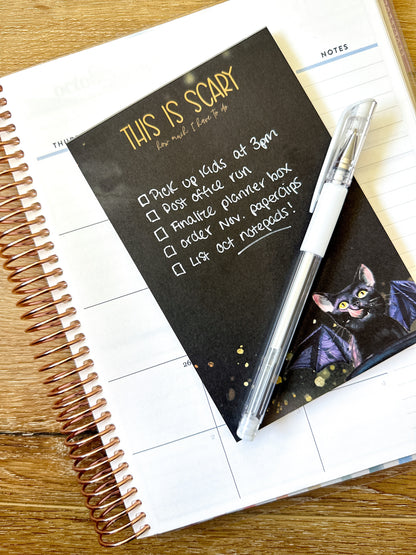 NOTES
THIS IS SCARY
how much I have to do
Pick up kids at 3pm
Post office run
Finalize planner box
order Nov. paperclips
List oct notepads!
26
2